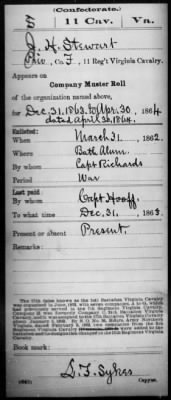 (Confederate.)
S 11 Cav. Va.
J. H. Stewart
Pvt., Co. F, 11 Reg't Virginia Cavalry.
Appears on
Company Muster Roll
of the organization named above,
for Dec. 31, 1863, to Apr. 30, 1864.
dated April 30, 1864.
Enlisted:
When March 31, 1862.
Where Bath Alum.
By whom Capt Richards
Period War
Last paid:
By whom Capt. Hooff.
To what time Dec. 31, 1863.
Present or absent Present
Remarks:
Book mark:
L. T. Sykes
Copyist.